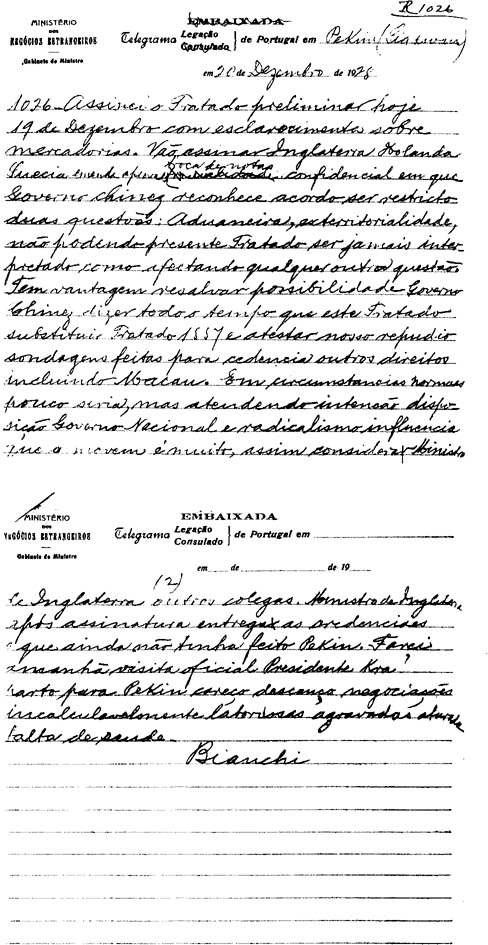 R 1026
MINISTÉRIO
DOS
NEGÓCIOS ESTRANGEIROS
Gabinete do Ministro
EMBAIXADA
Telegrama Legação Consulado de Portugal em Pekin
em 20 de Dezembro de 1928
1026 - Assinei o Tratado preliminar hoje
19 de Dezembro com esclarecimento sobre
mercadorias. Vão assinar Inglaterra Holanda
troca de notas
Suecia confidencial em que
Governo Chinez reconhece acordo ser restricto
duas questões: Aduaneira, exterritorialidade,
não podendo presente Tratado ser jamais inter-
pretado como afectando qualquer outra questão.
Tem vantagem resalvar possibilidade Governo
Chinez dizer todo o tempo que este Tratado
substituir Tratado 1887 e atestar nosso repudio
sondagens feitas para cedencia outros direitos
incluindo Macau. Em circumstancias normaes
pouco seria, mas atendendo intenção dispo-
sição Governo Nacional e radicalismo influencia
que o movem é muito, assim considera Ministro
MINISTÉRIO
DOS
NEGÓCIOS ESTRANGEIROS
Gabinete do Ministro
EMBAIXADA
Telegrama Legação Consulado de Portugal em
em de de 19
(2)
de Inglaterra outros colegas. Ministro de Inglaterra
após assinatura entregar as credenciaes
o que ainda não tinha feito Pekin. Farei
amanhã visita oficial Presidente
parto para Pekin careço descanço negociações
incalculavelmente laboriosas agravadas
falta de saude.
Bianchi